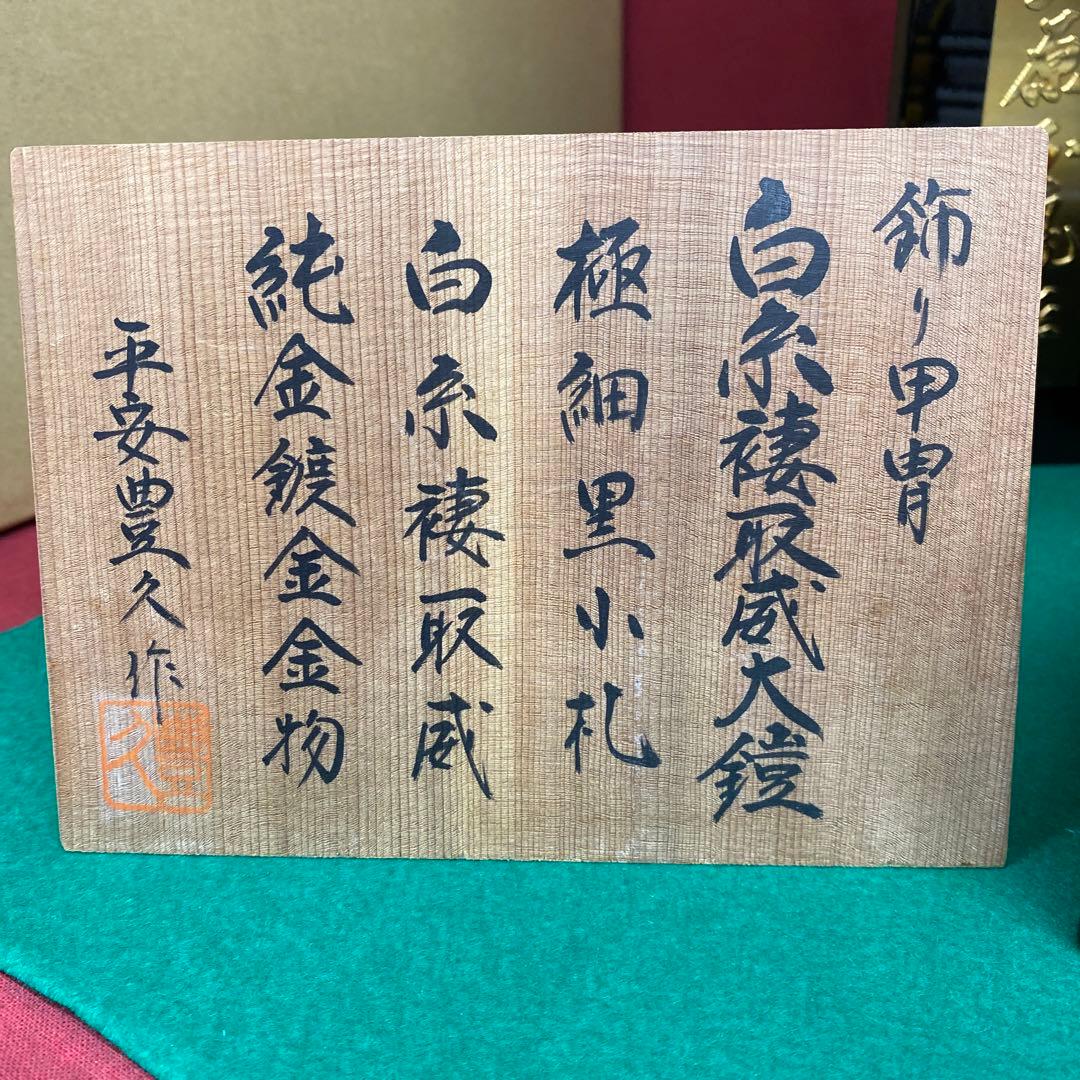 飾り甲冑
白糸褄取威大鎧
極細黒小札
白糸褄取威
純金鍍金金物
平安豊久作
豊久